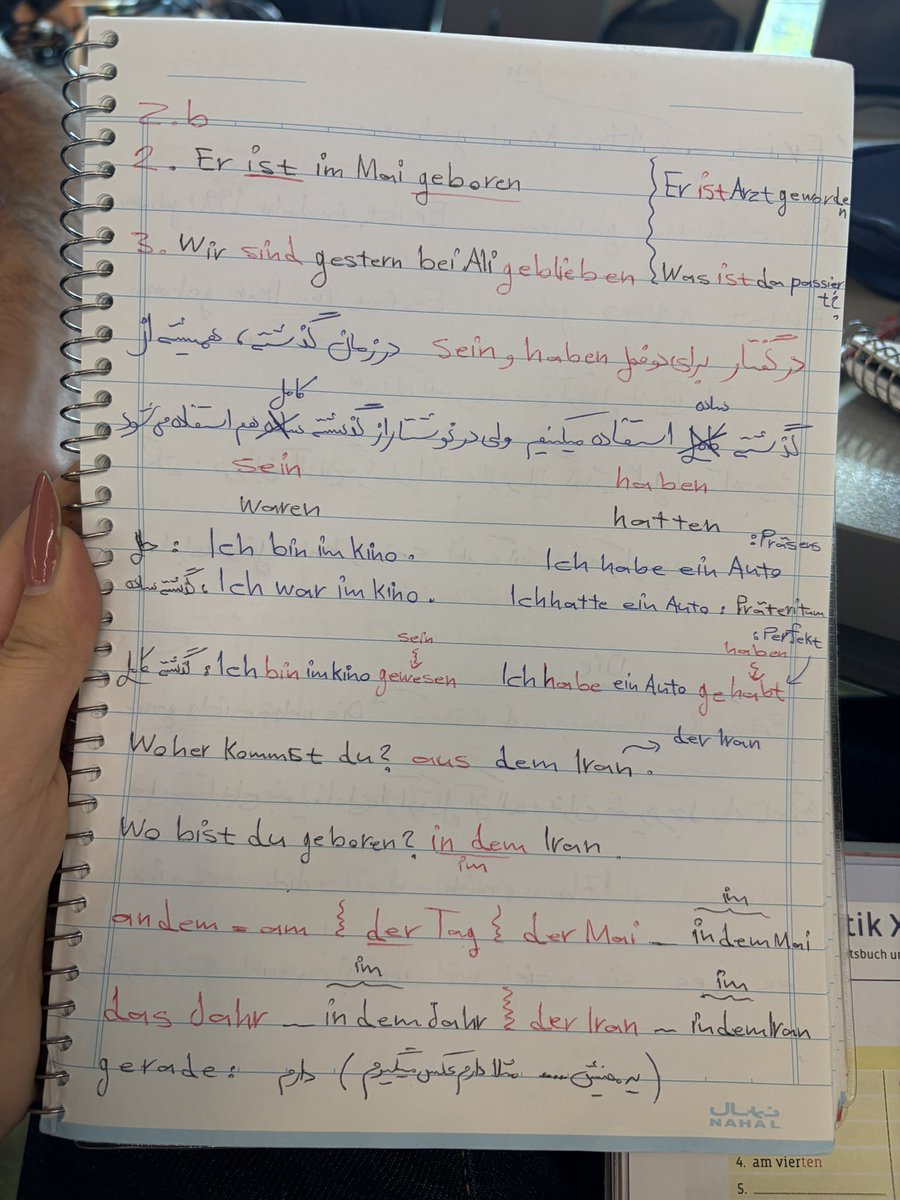 2.b
2. Er ist im Mai geboren { Er ist Arzt geworden
3. Wir sind gestern bei Ali geblieben { Was ist da passiert?
در گفتار برای دو فعل haben و sein در زمان گذشته، همیشه از
کامل
ساده
گذشته استفاده میکنیم ولی در نوشتار از گذشته هم استفاده می شود
sein haben
waren hatten
حال : Ich bin im kino. Ich habe ein Auto :Präsens
گذشته ساده : Ich war im kino. Ich hatte ein Auto : Präteritum
sein haben :Perfekt
گذشته کامل : Ich bin im kino gewesen Ich habe ein Auto gehabt
Woher kommst du? aus dem Iran. → der Iran
Wo bist du geboren? in dem Iran.
im
im
an dem = am } der Tag } der Mai - in dem Mai
im im
das Jahr - in dem Jahr } der Iran - in dem Iran
gerade : دارم ( مثلا دارم عکس میگیرم)
نهال
NAHAL
tik
tsbuch u
4. am vierten
5.